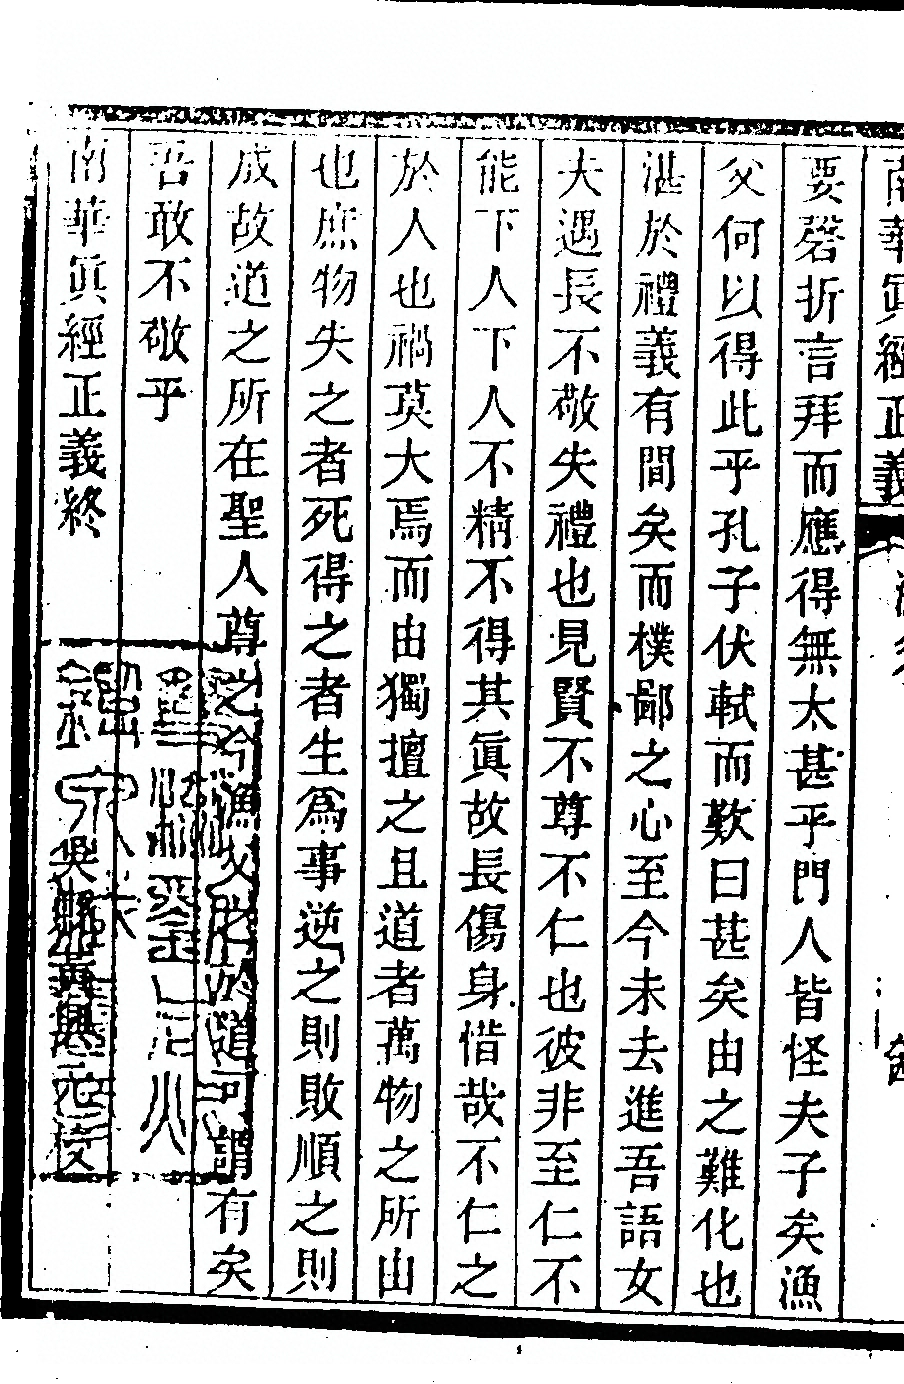 南華真經正義
要磬折言拜而應得無太甚乎門人皆怪夫子矣漁
父何以得此乎孔子伏軾而歎曰甚矣由之難化也
湛於禮義有間矣而樸鄙之心至今未去進吾語女
夫遇長不敬失禮也見賢不尊不仁也彼非至仁不
能下人下人不精不得其眞故長傷身惜哉不仁之
於人也禍莫大焉而由獨擅之且道者萬物之所由
也庶物失之者死得之者生爲事逆之則敗順之則
成故道之所在聖人尊之今漁父之於道可謂有矣
吾敢不敬乎
南華眞經正義終